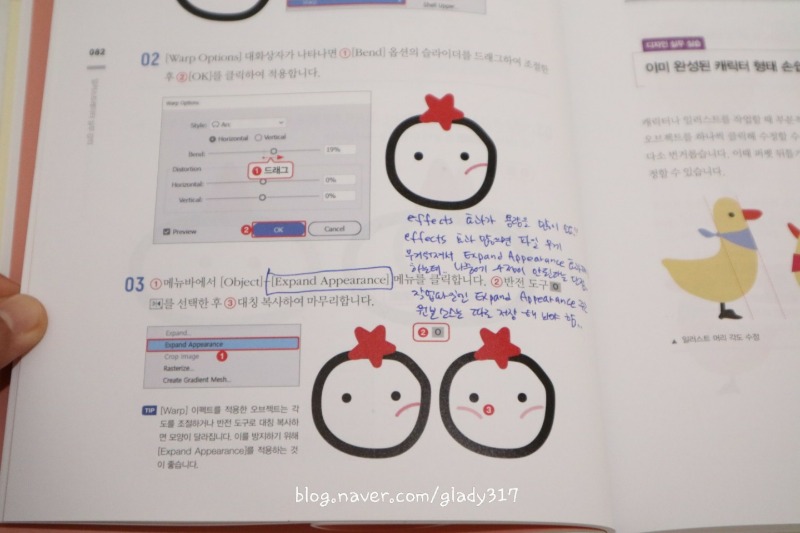 Shell Upper...
082
02 [Warp Options] 대화상자가 나타나면 ❶[Bend] 옵션의 슬라이더를 드래그하여 조절한
후 ❷[OK]를 클릭하여 적용합니다.
Warp Options
Style: Arc
Horizontal Vertical
Bend: 19%
Distortion
❶ 드래그
Horizontal: 0%
Vertical: 0%
Preview
❷ OK Cancel
effects 효과가 용량을 많이 씀!!
effects 효과 많으면 파일 무게
무거워져서 Expand Appearance
나중에 수정이 안된다는 단점
작업파일인 Expand Appearance
원본소스는 따로 저장 해 놔야 함.
03 ❶메뉴바에서 [Object]-[Expand Appearance] 메뉴를 클릭합니다. ❷반전 도구 O
를 선택한 후 ❸대칭 복사하여 마무리합니다.
Expand...
Expand Appearance
Crop Image ❶
Rasterize...
Create Gradient Mesh...
❷ O
❸
TIP [Warp] 이펙트를 적용한 오브젝트는 각
도를 조절하거나 반전 도구로 대칭 복사하
면 모양이 달라집니다. 이를 방지하기 위해
[Expand Appearance]를 적용하는 것
이 좋습니다.
디자인 실무 실습
이미 완성된 캐릭터 형태 손쉽
캐릭터나 일러스트를 작업할 때 부분적
오브젝트를 하나씩 클릭해 수정할 수
다소 번거롭습니다. 이때 퍼펫 뒤틀기
정할 수 있습니다.
▲ 일러스트 머리 각도 수정
blog.naver.com/glady317